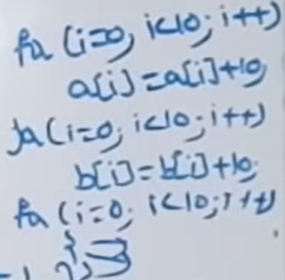 for (i=0; i<10; i++)
a[i] = a[i]+10;
for (i=0; i<10; i++)
b[i] = b[i]+10;
for (i=0; i<10; i++)
{